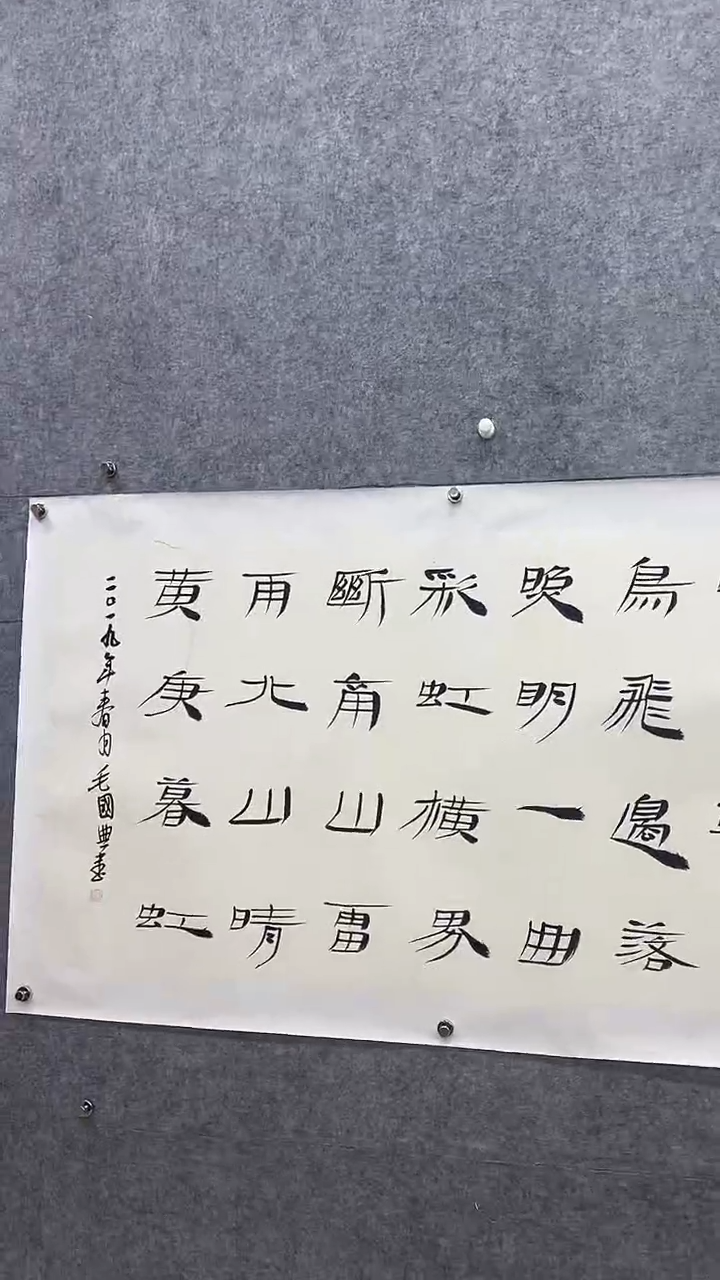 鳥飛邊落
晚明一曲
彩虹橫界
斷南山雷
雨北山晴
黄庚暮虹
二〇一九年春月毛國典書